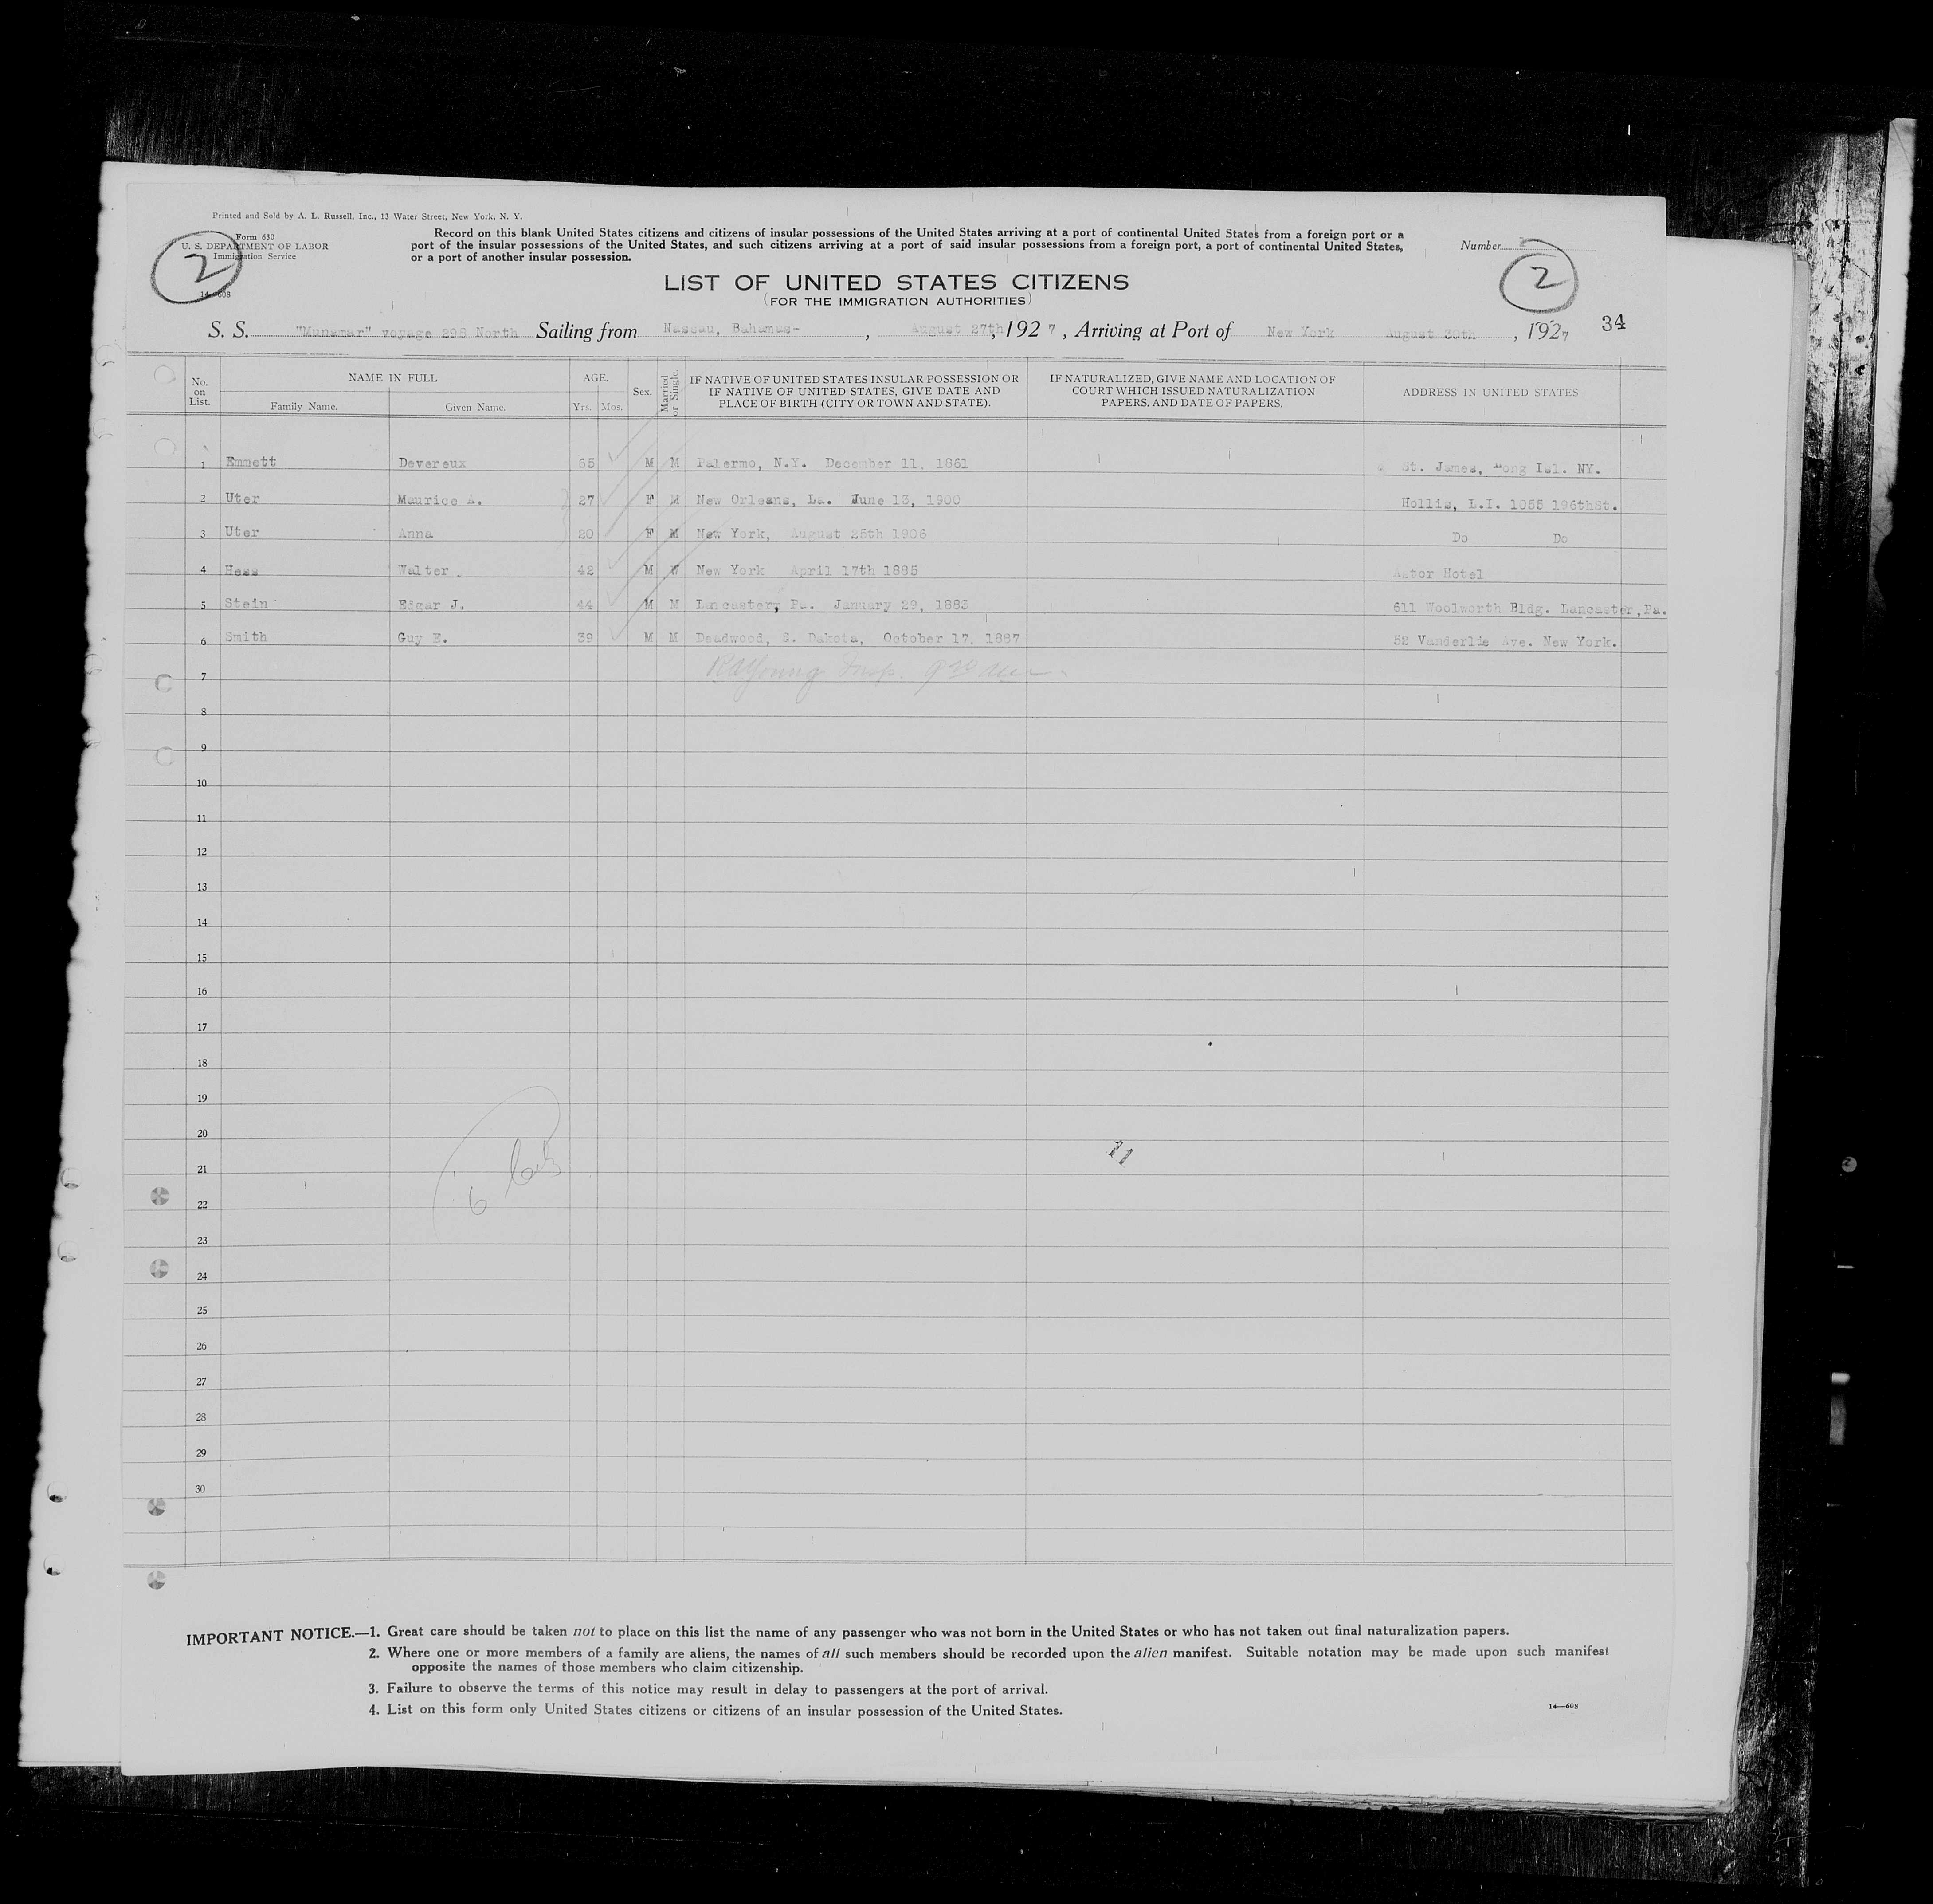 Printed and Sold by A. L. Russell, Inc., 13 Water Street, New York, N. Y.
Form 630
U. S. DEPARTMENT OF LABOR
Immigration Service
14—608
2
Record on this blank United States citizens and citizens of insular possessions of the United States arriving at a port of continental United States from a foreign port or a
port of the insular possessions of the United States, and such citizens arriving at a port of said insular possessions from a foreign port, a port of continental United States,
or a port of another insular possession.
Number
2
LIST OF UNITED STATES CITIZENS
(FOR THE IMMIGRATION AUTHORITIES)
S. S. "Munamar" voyage 296 North Sailing from Nassau, Bahamas- , August 27th, 1927, Arriving at Port of New York August 30th, 1927 34
No. on List. NAME IN FULL AGE. Sex. Married or Single. IF NATIVE OF UNITED STATES INSULAR POSSESSION OR IF NATIVE OF UNITED STATES, GIVE DATE AND PLACE OF BIRTH (CITY OR TOWN AND STATE). IF NATURALIZED, GIVE NAME AND LOCATION OF COURT WHICH ISSUED NATURALIZATION PAPERS, AND DATE OF PAPERS. ADDRESS IN UNITED STATES
Family Name. Given Name. Yrs. Mos.
1 Emmett Devereux 65 M M Palermo, N.Y. December 11, 1861 St. James, Long Isl. NY.
2 Uter Maurice A. 27 F M New Orleans, La. June 13, 1900 Hollis, L.I. 1055 196thSt.
3 Uter Anna 20 F M New York, August 25th 1906 Do Do
4 Hess Walter 42 M W New York April 17th 1885 Astor Hotel
5 Stein Edgar J. 44 M M Lancaster, Pa. January 29, 1883 611 Woolworth Bldg. Lancaster,Pa.
6 Smith Guy E. 39 M M Deadwood, S. Dakota, October 17, 1887 52 Vanderlie Ave. New York.
7 Young Insp
8
9
10
11
12
13
14
15
16
17
18
19
20
21
22
23
24
25
26
27
28
29
30
6
11
IMPORTANT NOTICE.—1. Great care should be taken not to place on this list the name of any passenger who was not born in the United States or who has not taken out final naturalization papers.
2. Where one or more members of a family are aliens, the names of all such members should be recorded upon the alien manifest. Suitable notation may be made upon such manifest
opposite the names of those members who claim citizenship.
3. Failure to observe the terms of this notice may result in delay to passengers at the port of arrival.
4. List on this form only United States citizens or citizens of an insular possession of the United States.
14—608